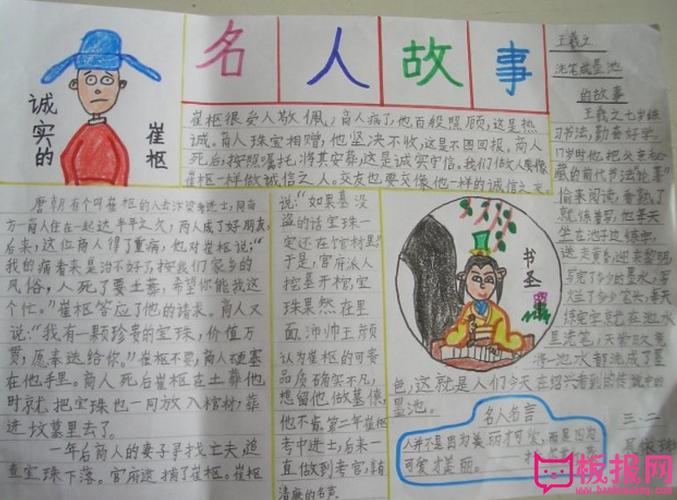 名人故事
诚实的
崔枢
崔枢很受人敬佩，商人病了，他百般照顾，这是热
诚。商人珠宝相赠，他坚决不收，这是不图回报。商人
死后，按照嘱托，将其安葬，这是诚实守信。我们做人要像
崔枢一样做诚信之人。交友也要交像他一样的诚信之友。
唐朝有个叫崔枢的人去汴梁考进士，同南
方一商人住在一起达半年之久，两人成了好朋友，
后来，这位商人得了重病，他对崔枢说：“
我的病看来是治不好了，按我们家乡的
风俗，人死了要土葬，希望你能我这
个忙。”崔枢答应了他的请求。商人又
说：“我有一颗珍贵的宝珠，价值万
贯，愿奉送给你。”崔枢不要，商人硬塞
在他手里。商人死后崔枢在土葬他
时就把宝珠也一同放入棺材，葬
进坟墓里去了。
一年后商人的妻子寻找亡夫，追
查宝珠下落。官府逮捕了崔枢。崔枢
说：“如果墓没
盗的话宝珠一
定还在棺材里”
于是，官府派人
挖墓开棺宝
珠果然在里
面。沛帅王颜
认为崔枢的可贵
品质确实不凡，
想留他做幕僚，
他不肯。第二年崔枢
考中进士，后来一
直做到考官，享有
清廉的名声。
王羲之
洗笔成墨池
的故事
王羲之七岁练
习书法，勤奋好学。
17岁时他把父亲秘
藏的前代书法论著
偷来阅读，看熟了
就练着写，他每天
坐在池子边练字，
送走黄昏，迎来黎明，
写完了多少的墨水，写
烂了多少笔头，每天
练完字就在池水
里洗笔，天长日久竟
将一池水都洗成了墨
色，这就是人们今天在绍兴看到的传说中的
墨池。
书圣
名人名言
人并不是因为美丽才可爱，而是因为
可爱才美丽。
三.二
板报网